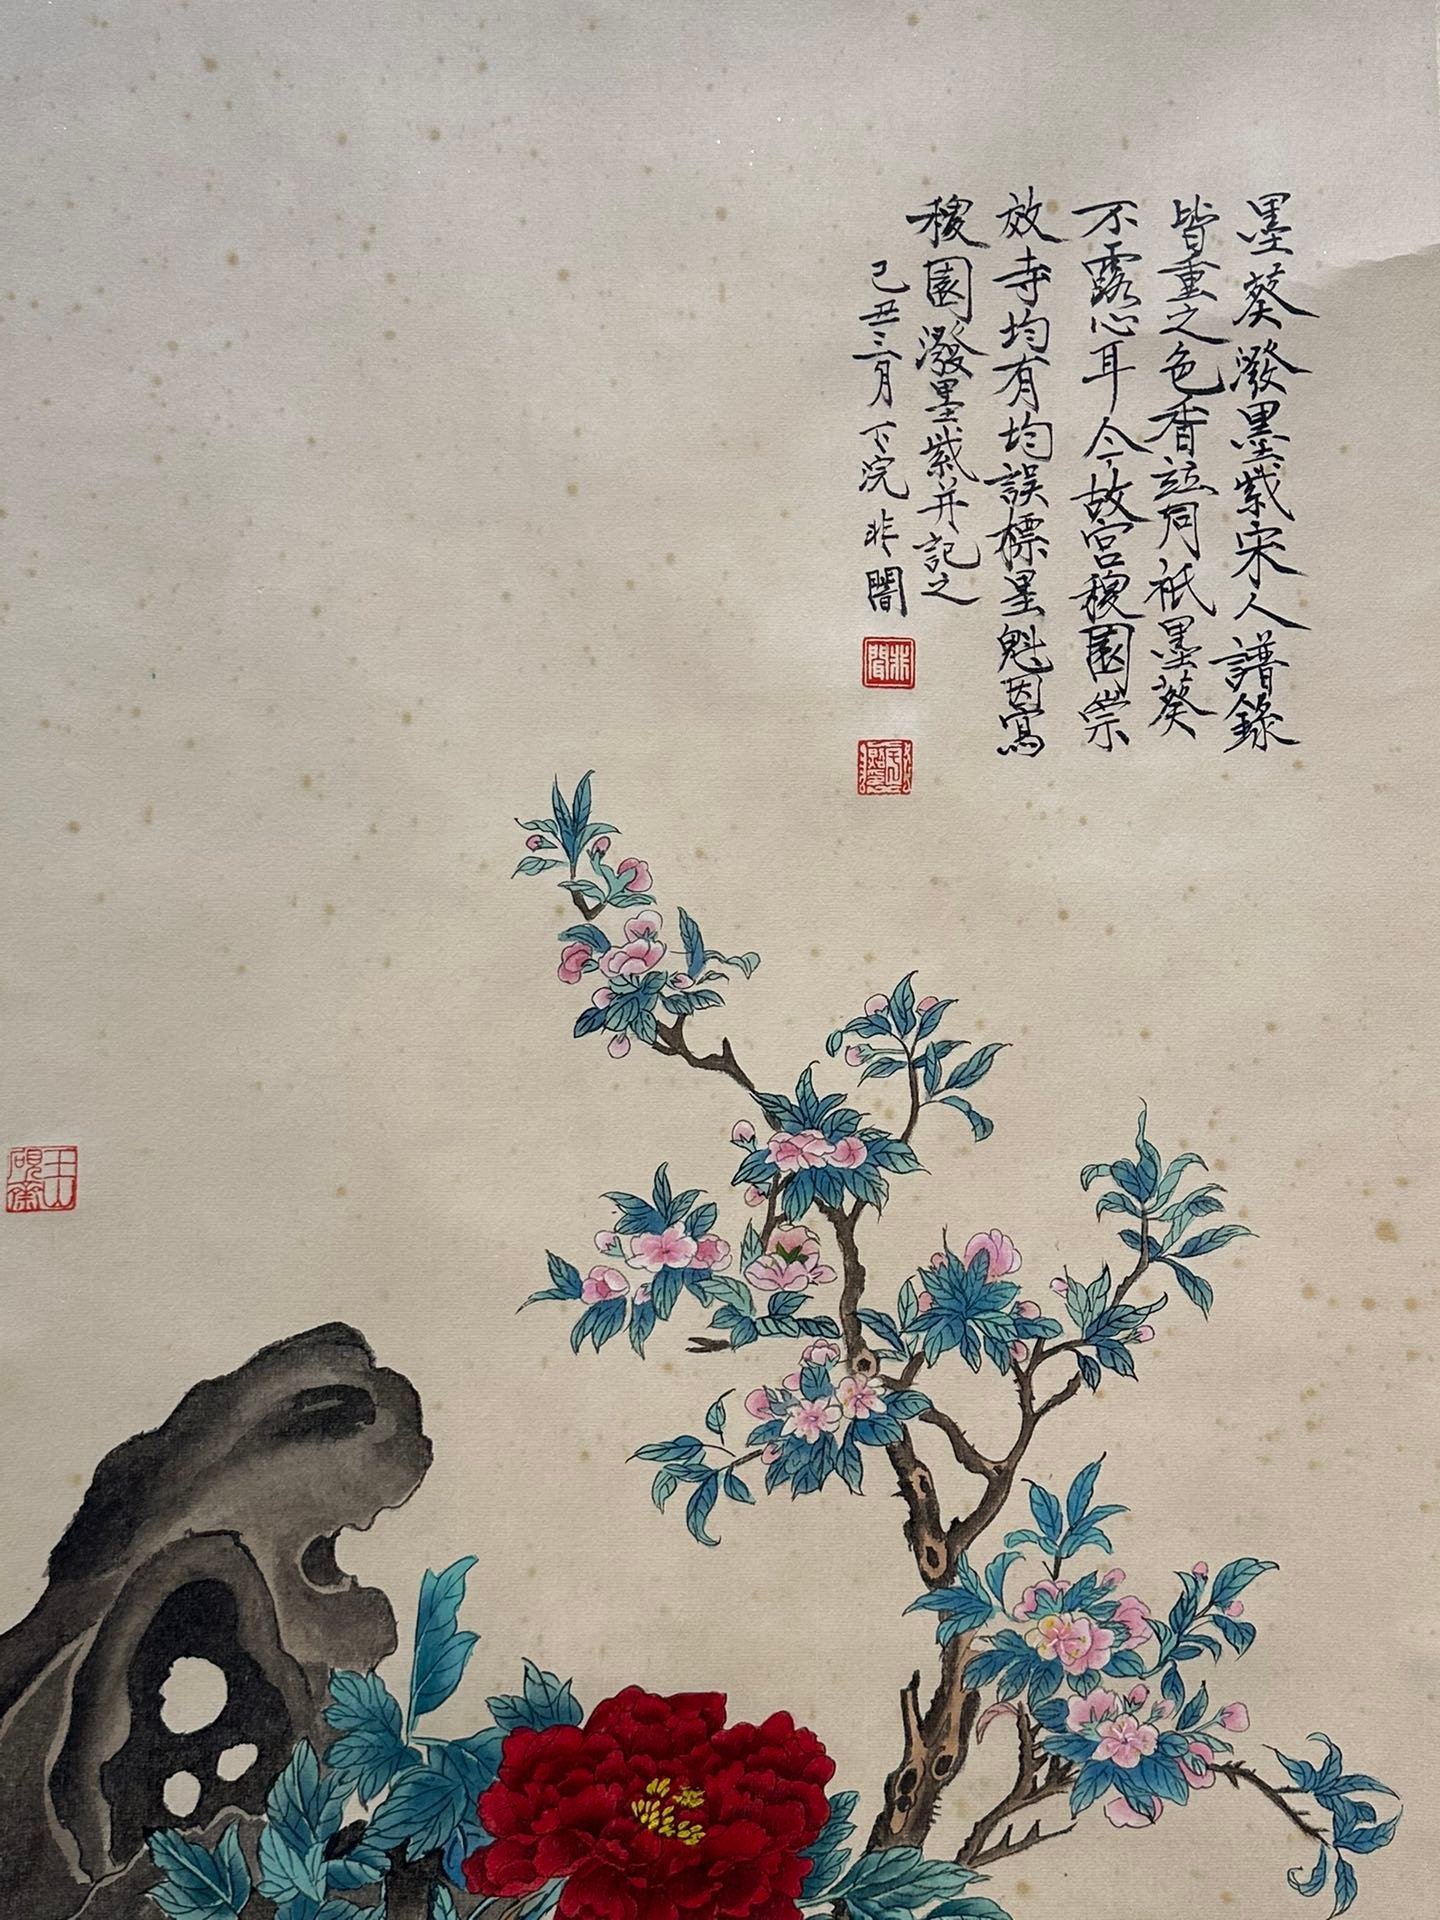 墨葵潑墨紫宋人譜錄
皆重之色香竝同祇墨葵
不露心耳今故宮稷園崇
效寺均有均誤標墨魁因寫
稷園潑墨紫并記之
己丑三月下浣非闇
非闇
玉山硯齋